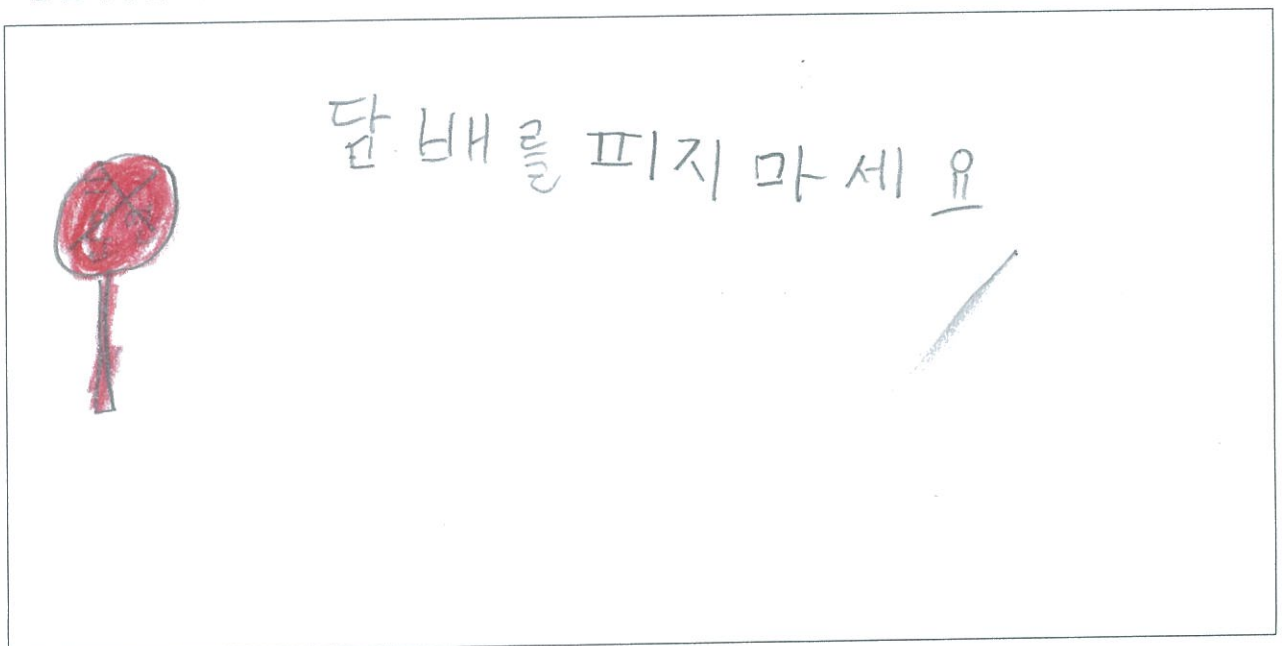 담배를 피지 마세요